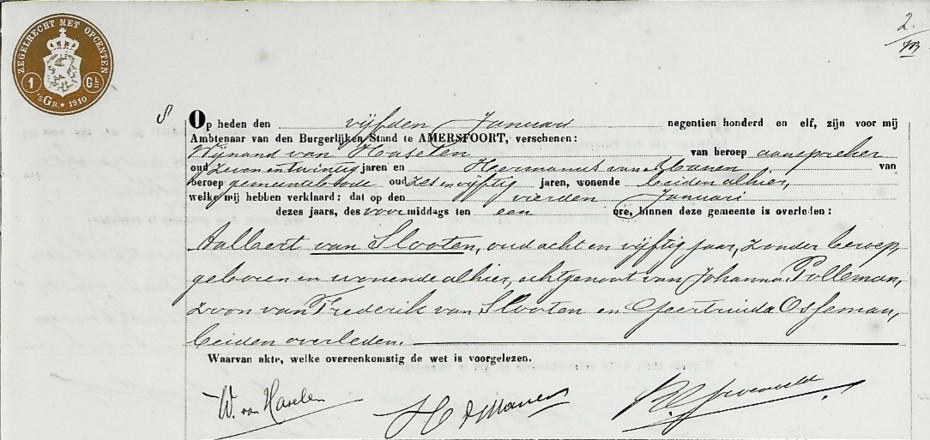 2.
ZEGELRECHT MET OPCENTEN
1 GL
'sGR. 1910
8 Op heden den vijfden Januari negentien honderd en elf, zijn voor mij
Ambtenaar van den Burgerlijken Stand te AMERSFOORT, verschenen:
Wijnand van Haselen van beroep aanspreker
oud zeven en twintig jaren en Hermanus van van
beroep gemeentebode oud zes en vijftig jaren, wonende beiden alhier,
welke mij hebben verklaard: dat op den vierden Januari
dezes jaars, des voor middags ten een ure, binnen deze gemeente is overleden:
Aalbert van Slooten, oud acht en vijftig jaar, zonder beroep,
geboren en wonende alhier, echtgenoot van Johanna Polleman,
zoon van Frederik van Slooten en Geertruida Osseman,
beiden overleden.
Waarvan akte, welke overeenkomstig de wet is voorgelezen.
W. van Haselen H